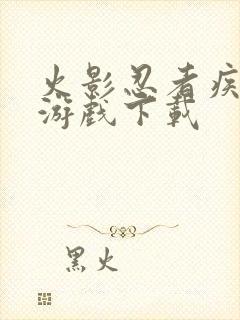 火影忍者疾
游戏下载
黑火